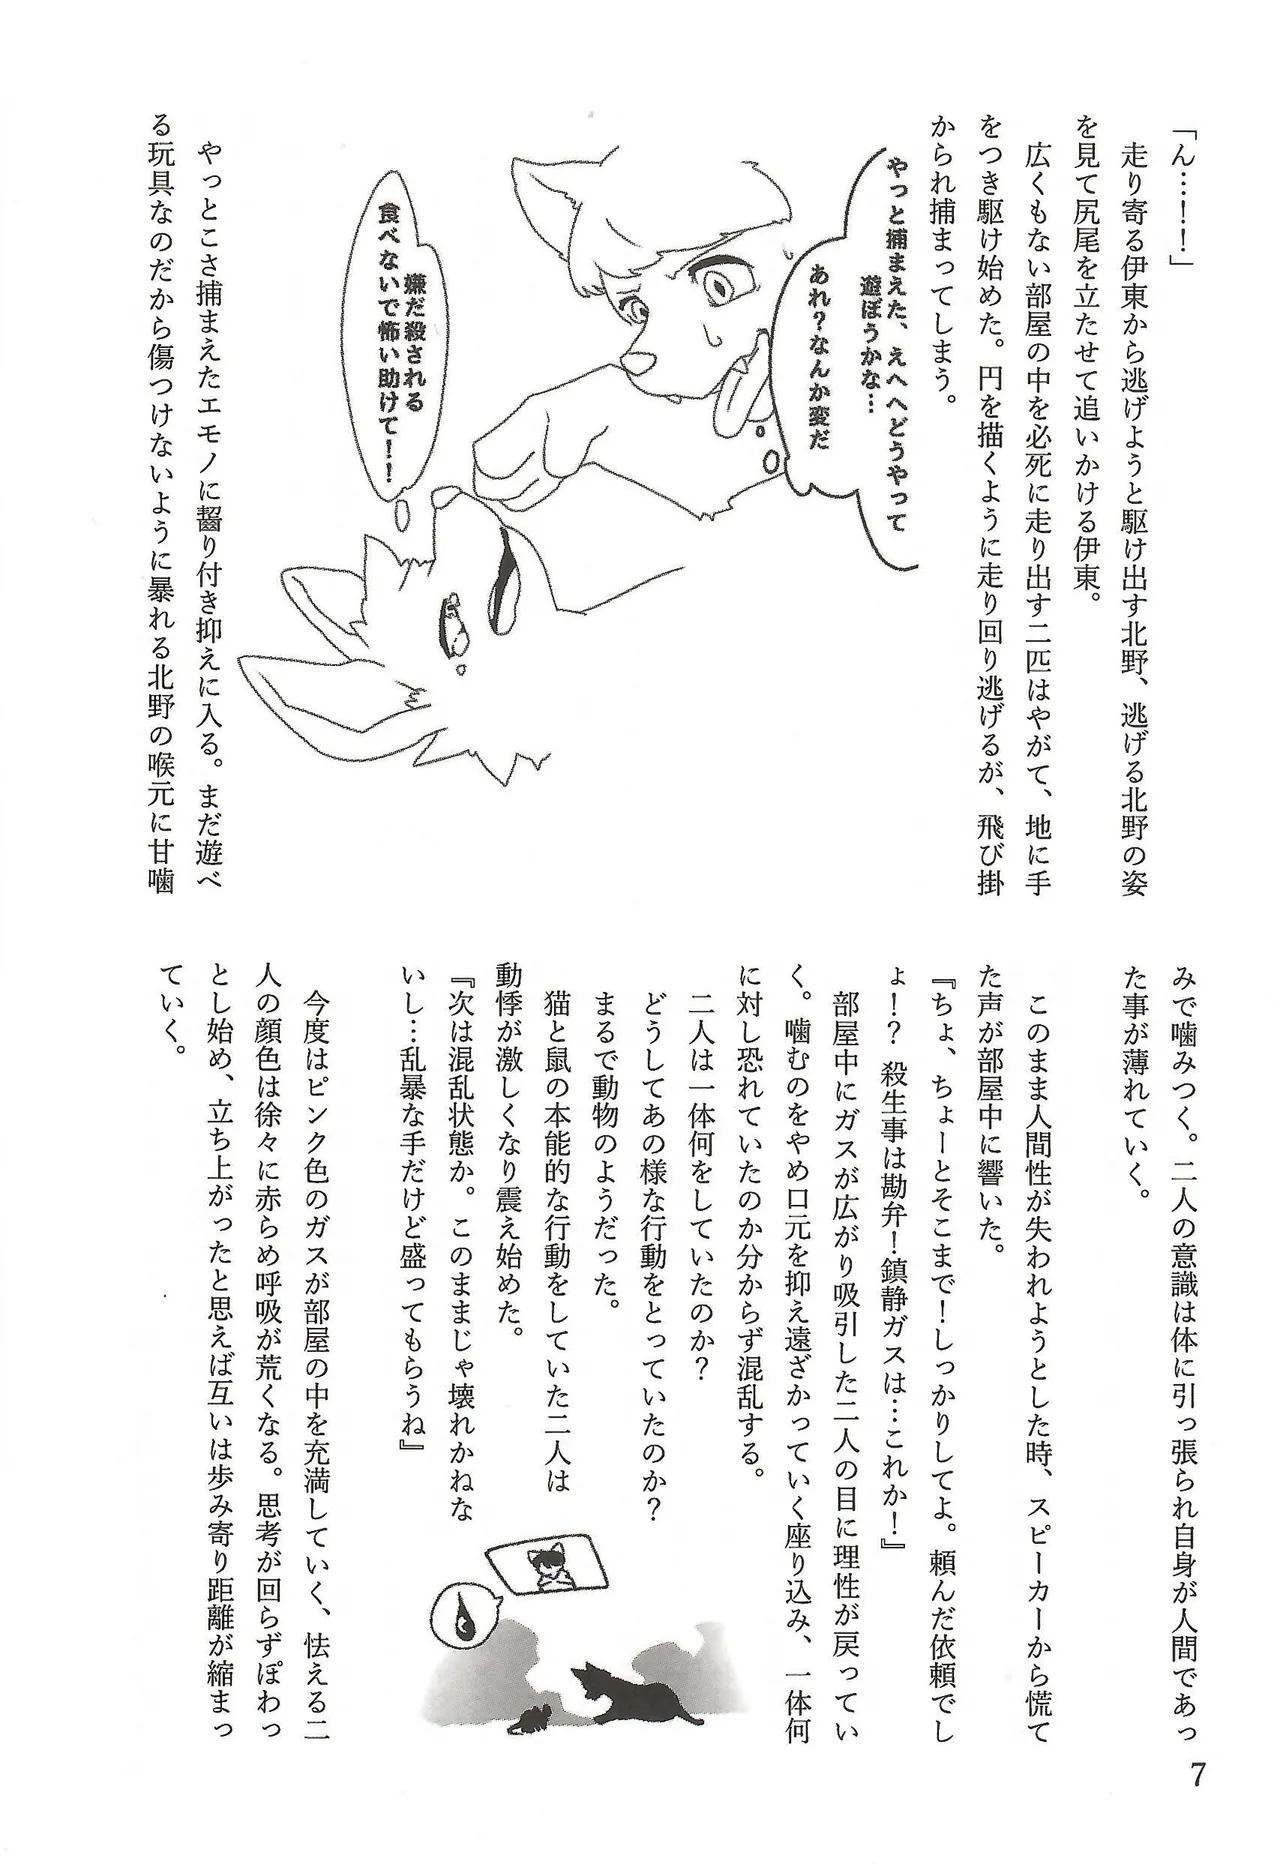 「ん…！！」
　走り寄る伊東から逃げようと駆け出す北野、逃げる北野の姿
を見て尻尾を立たせて追いかける伊東。
　広くもない部屋の中を必死に走り出す二匹はやがて、地に手
をつき駆け始めた。円を描くように走り回り逃げるが、飛び掛
かられ捕まってしまう。
やっと捕まえた、えへへどうやって
遊ぼうかな…
あれ？なんか変だ
嫌だ殺される
食べないで怖い助けて！！
　やっとこさ捕まえたエモノに齧り付き抑えに入る。まだ遊べ
る玩具なのだから傷つけないように暴れる北野の喉元に甘噛
みで噛みつく。二人の意識は体に引っ張られ自身が人間であっ
た事が薄れていく。
　このまま人間性が失われようとした時、スピーカーから慌て
た声が部屋中に響いた。
『ちょ、ちょーとそこまで！しっかりしてよ。頼んだ依頼でし
ょ！？ 殺生事は勘弁！鎮静ガスは…これか！』
　部屋中にガスが広がり吸引した二人の目に理性が戻ってい
く。噛むのをやめ口元を抑え遠ざかっていく座り込み、一体何
に対し恐れていたのか分からず混乱する。
　二人は一体何をしていたのか？
　どうしてあの様な行動をとっていたのか？
　まるで動物のようだった。
　猫と鼠の本能的な行動をしていた二人は
動悸が激しくなり震え始めた。
『次は混乱状態か。このままじゃ壊れかねな
いし…乱暴な手だけど盛ってもらうね』
　今度はピンク色のガスが部屋の中を充満していく、怯える二
人の顔色は徐々に赤らめ呼吸が荒くなる。思考が回らずぽわっ
とし始め、立ち上がったと思えば互いは歩み寄り距離が縮まっ
ていく。
7